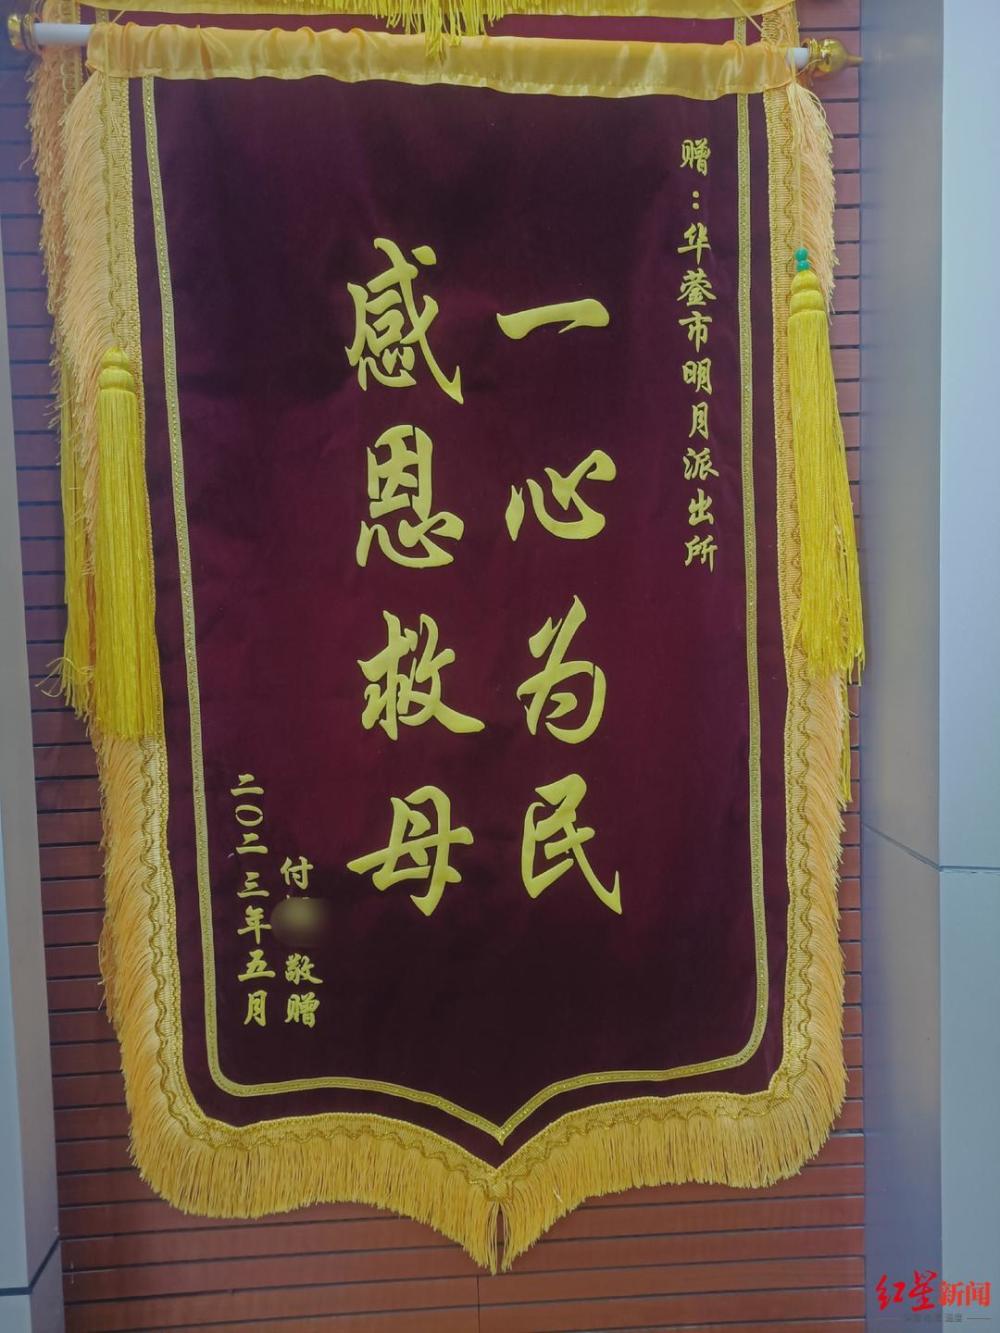 赠：华蓥市明月派出所
一心为民
感恩救母
付
敬赠
二〇二三年五月
红星新闻